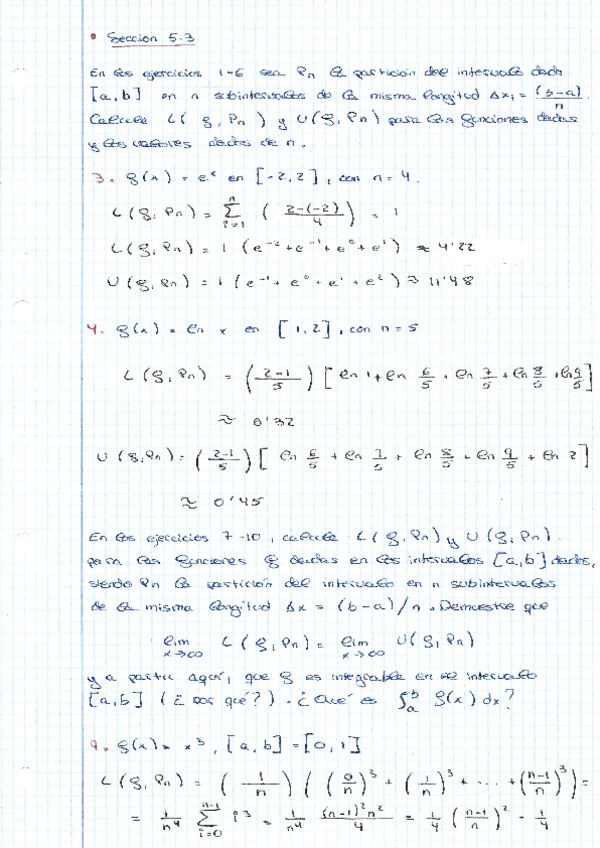 • Sección 5.3
En los ejercicios 1-6 sea Pn la partición del intervalo dado
[a,b] en n subintervalos de la misma longitud Δxᵢ = (b-a)/n.
Calcule L(f, Pn) y U(f, Pn) para las funciones dadas
y los valores dados de n.
3. f(x) = eˣ en [-2,2], con n = 4.
L(f, Pn) = ∑ᵢ₌₁ⁿ ((2-(-2))/4) = 1
L(f, Pn) = 1 (e⁻² + e⁻¹ + e⁰ + e¹) ≈ 4'22
U(f, Pn) = 1 (e⁻¹ + e⁰ + e¹ + e²) ≈ 11'48
4. f(x) = ln x en [1,2], con n = 5
L(f, Pn) = ((2-1)/5) [ln 1 + ln 6/5 + ln 7/5 + ln 8/5 + ln 9/5]
≈ 0'32
U(f, Pn) = ((2-1)/5) [ln 6/5 + ln 7/5 + ln 8/5 + ln 9/5 + ln 2]
≈ 0'45
En los ejercicios 7-10, calcule L(f, Pn) y U(f, Pn)
para las funciones f dadas en los intervalos [a,b] dados,
siendo Pn la partición del intervalo en n subintervalos
de la misma longitud Δx = (b-a)/n. Demuestre que
lim x→∞ L(f, Pn) = lim x→∞ U(f, Pn)
y a partir aquí, que f es integrable en el intervalo
[a,b] (¿por qué?). ¿Qué es ∫ₐᵇ f(x) dx?
9. f(x) = x³, [a,b] = [0,1]
L(f, Pn) = (1/n) ((0/n)³ + (1/n)³ + ... + ((n-1)/n)³) =
= 1/n⁴ ∑ᵢ₌₀ⁿ⁻¹ i³ = 1/n⁴ (n-1)²n²/4 = 1/4 ((n-1)/n)² - 1/4